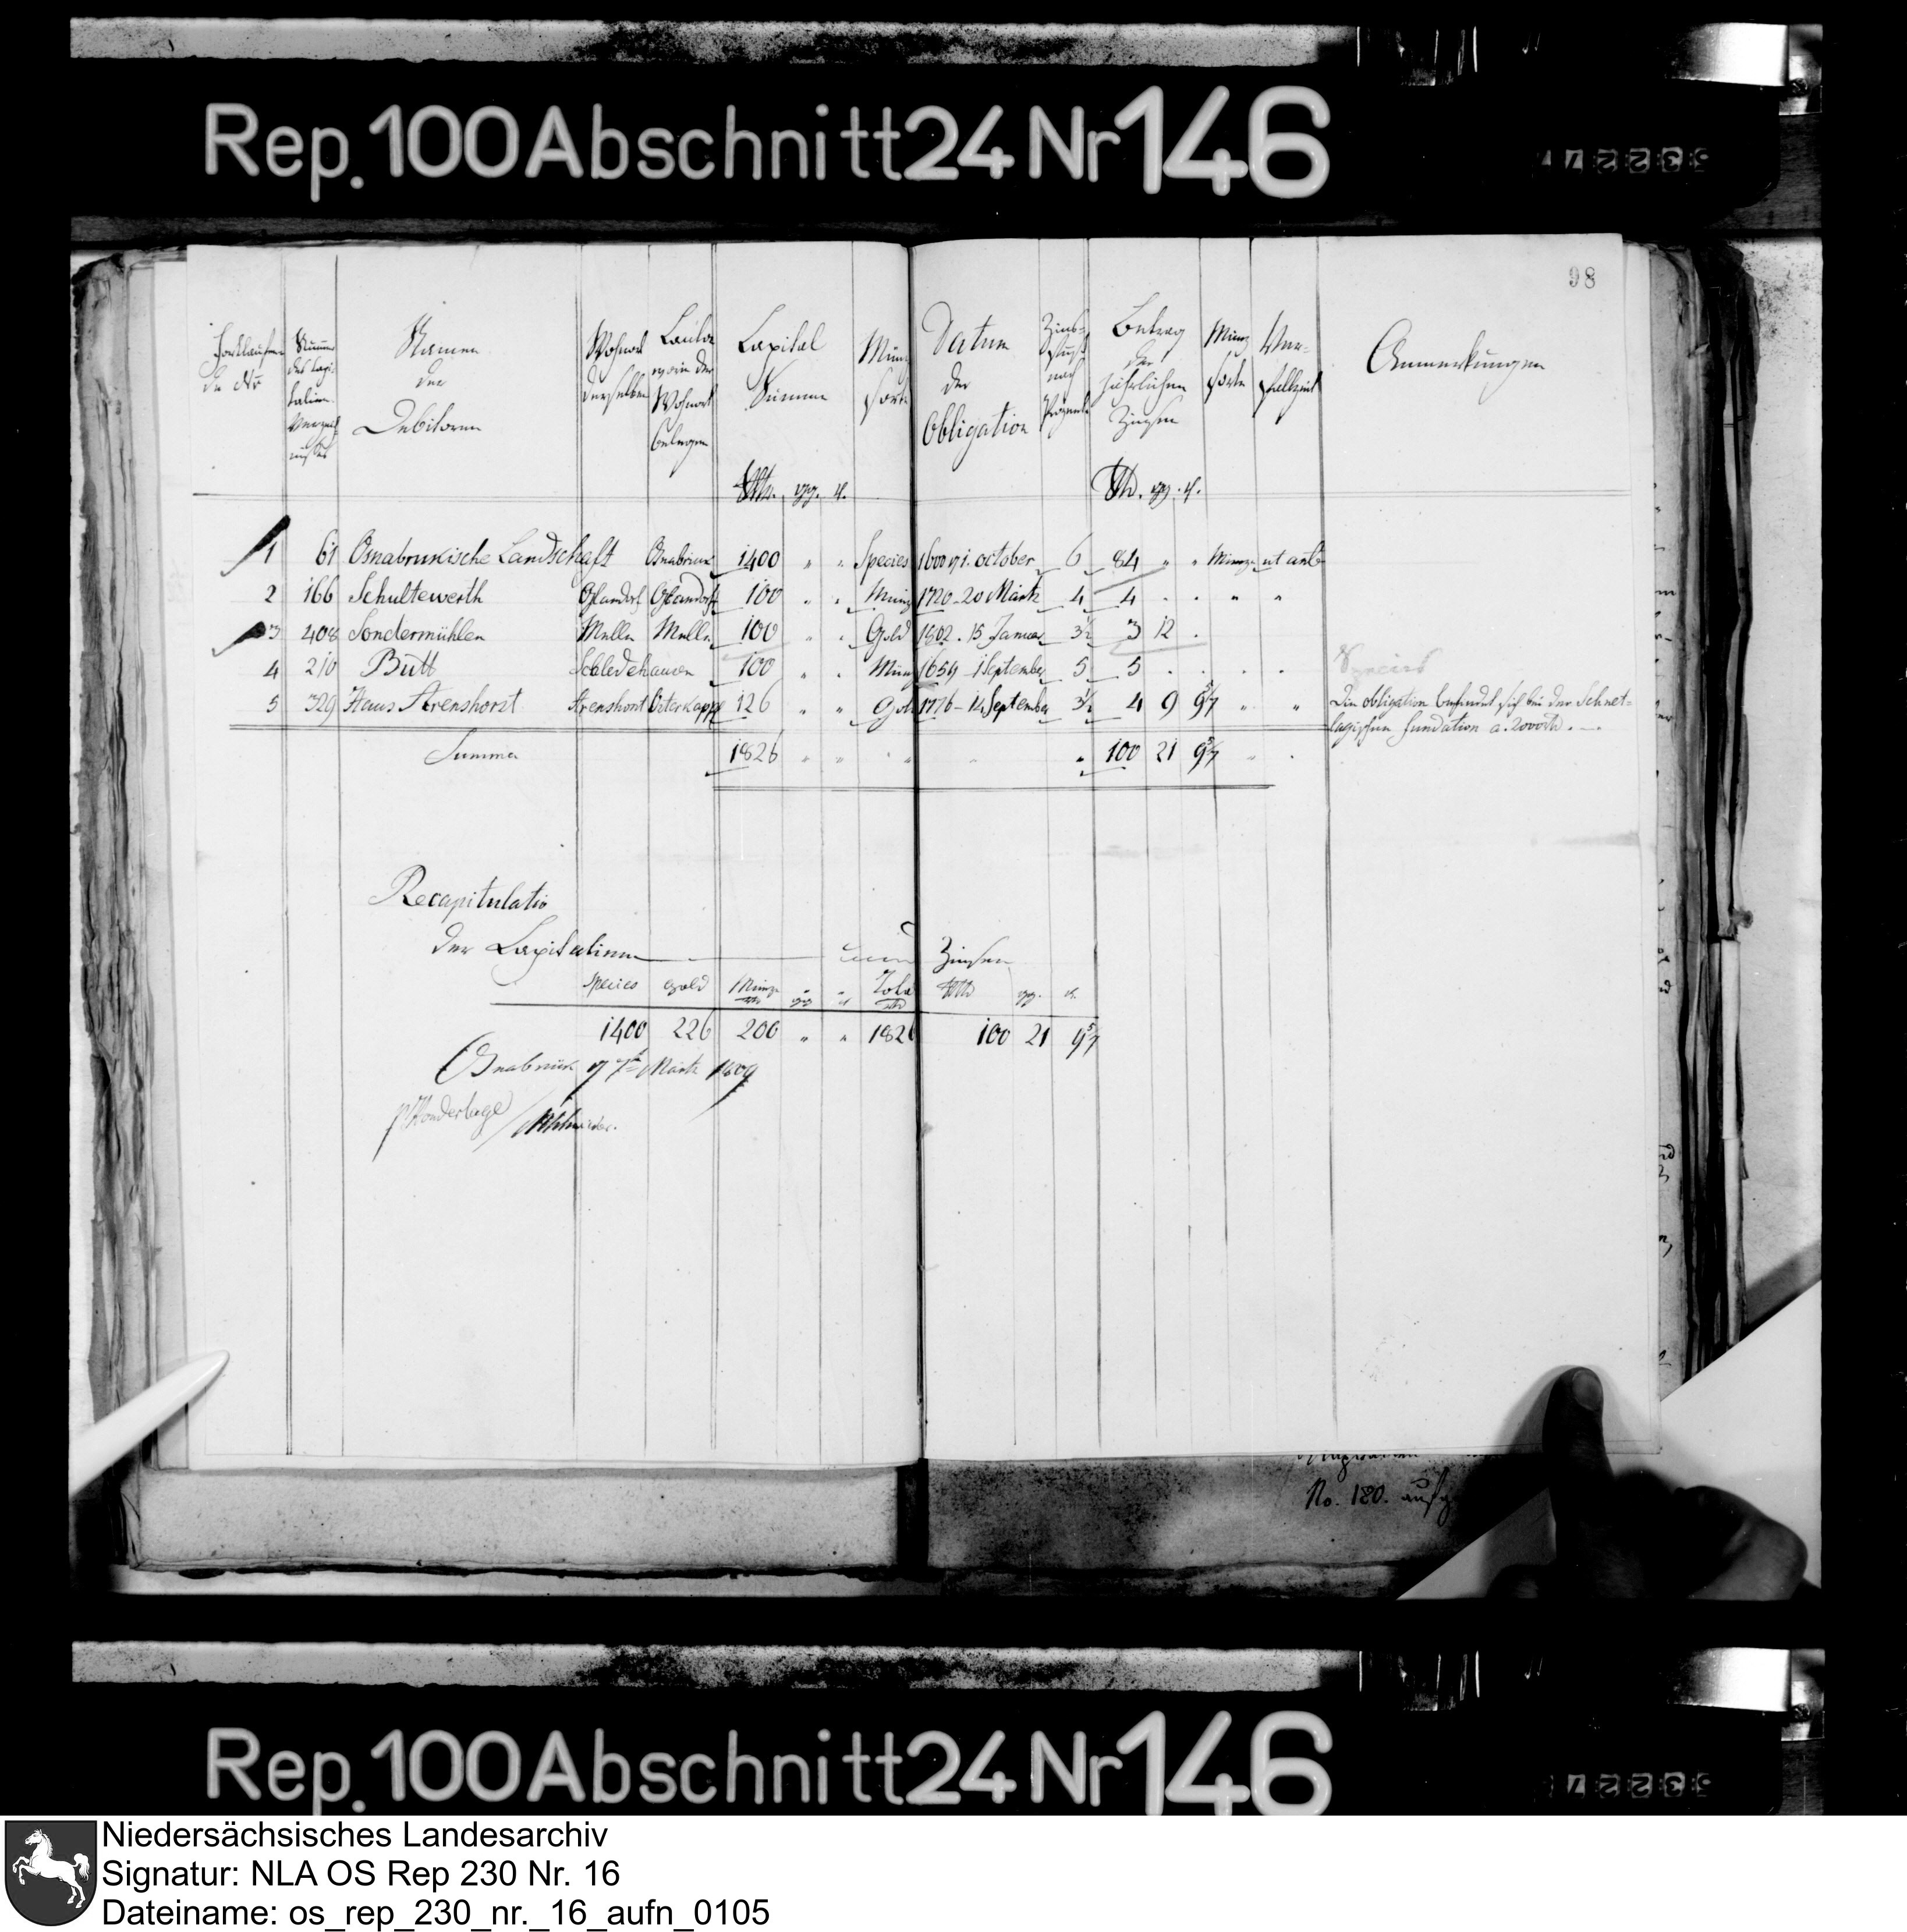 Rep. 100 Abschnitt 24 Nr 146
98
Fortlaufen
de No
Numer
des Capi-
talien
Verzeich
nisses
Namen
der
Debitoren
Wohnort
derselben
Canton
worin der
Wohnort
belegen
Capital
Summe
Münz
sorte
Datum
der
Obligation
Zins-
fuss
nach
Procente
Betrag
der
jährlichen
Zinsen
Münz
sorte
Ver-
fallzeit
Anmerkungen
Rth. gg. d. Rth. gg. d.
1 61 Osnabrukische Landschaft Osnabrück 1400 " " Species 1600 91. october 6 84 " " Münze ut ante
2 166 Schultewerth Glandorf Glandorff 100 " " Münz 1720 - 20 Märtz 4 4 . . " "
3 408 Sondermühlen Melle Melle 100 " " Gold 1802. 15 Januar 3½ 3 12 .
4 210 Butt Schledehausen 100 " " Münz 1654 - 1 September 5 5 . . . . Species
5 329 Haus Arenshorst Arenshorst Osterkappe 126 " " Gold 1776 - 14 September 3½ 4 9 9 5/7 " " Die obligation befindet sich bei der Schnet-
lagischen fundation a. 2000 rth. .—.
Summa 1826 " " " " " 100 21 9 5/7 " .
Recapitulatio
der Capitalien und Zinsen
Species Gold Münze gg d Total Rth gg. d.
1400 226 200 " " 1826 100 21 9 5/7
Osnabrück 7ten Märtz 1809
No. 180.
Rep. 100 Abschnitt 24 Nr 146
Niedersächsisches Landesarchiv
Signatur: NLA OS Rep 230 Nr. 16
Dateiname: os_rep_230_nr._16_aufn_0105